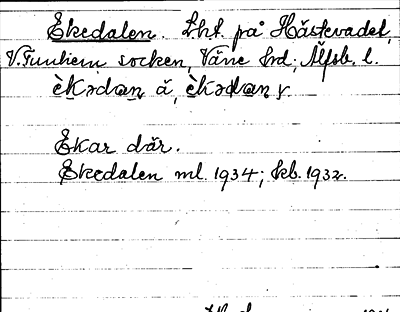 Ekedalen. Lht. på Hästevadet,
V. Tunhem socken, Väne hrd; Älfsb. l.
èkədan ä, èkədan y.
Ekar där.
Ekedalen ml. 1934; kb. 1932.